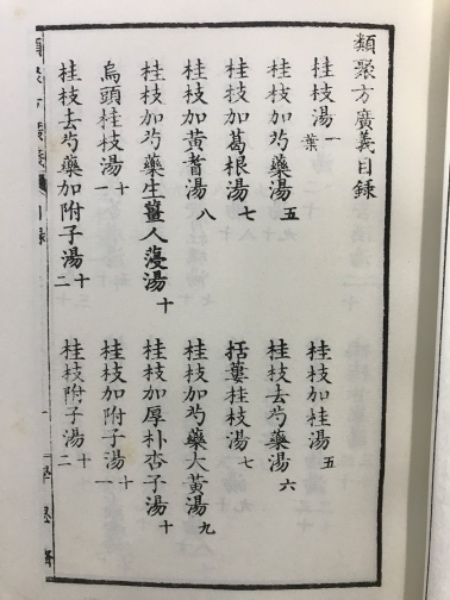 類聚方廣義目録
桂枝湯 一葉
桂枝加桂湯 五
桂枝加芍藥湯 五
桂枝去芍藥湯 六
桂枝加葛根湯 七
括蔞桂枝湯 七
桂枝加黃蓍湯 八
桂枝加芍藥大黃湯 九
桂枝加芍藥生薑人蓡湯 十
桂枝加厚朴杏子湯 十
烏頭桂枝湯 十一
桂枝加附子湯 十一
桂枝去芍藥加附子湯 十二
桂枝附子湯 十二